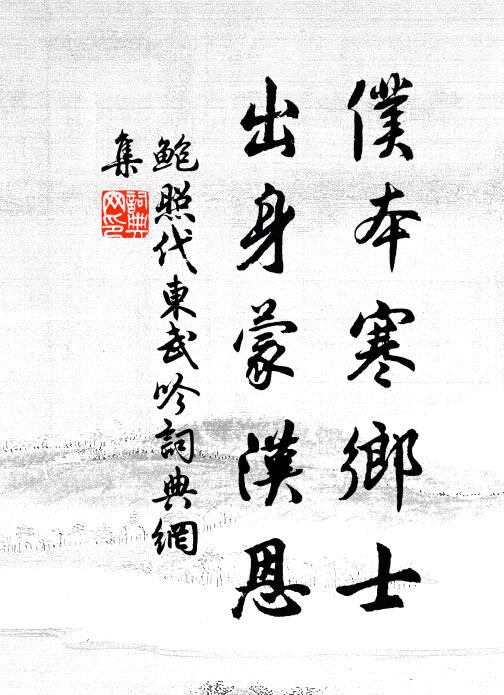 僕本寒鄉士
出身蒙漢恩
鮑照代東武吟詞典網
集
詞典
网印